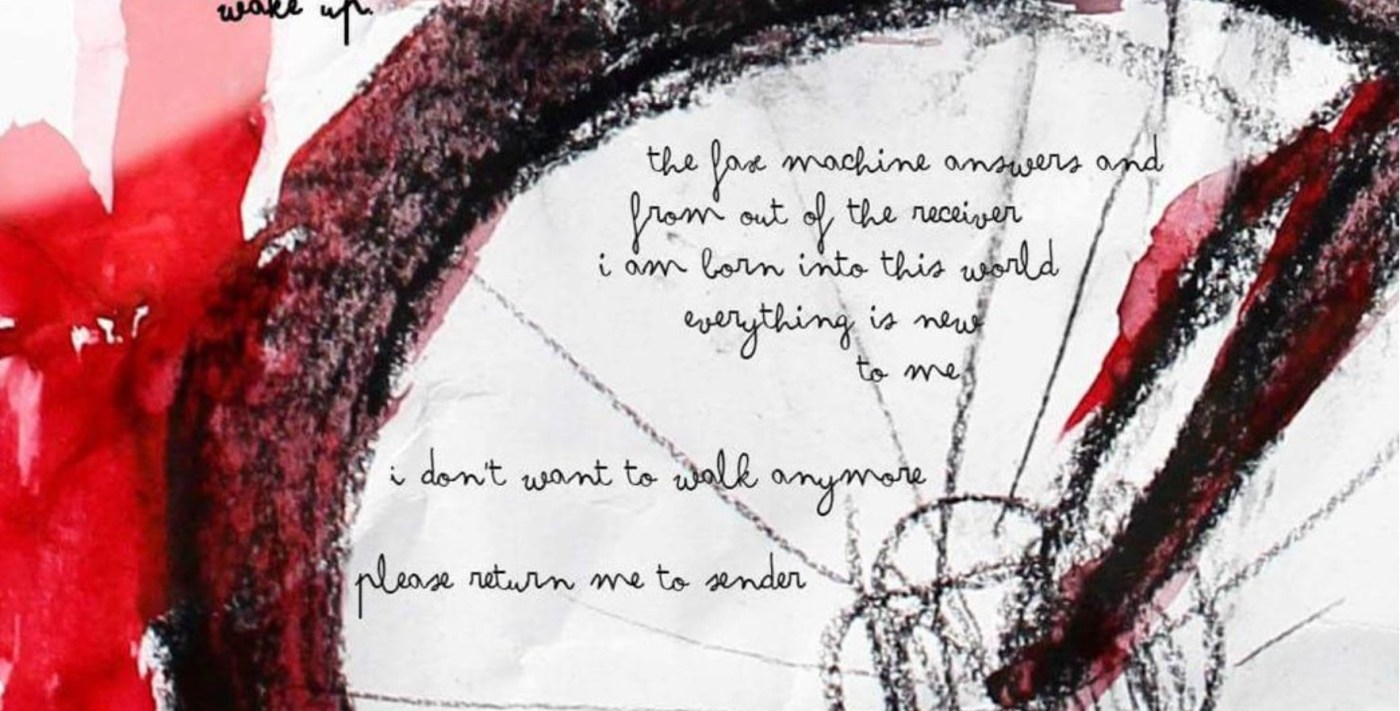 wake up.
the fax machine answers and
from out of the receiver
i am born into this world
everything is new
to me
i don't want to walk anymore
please return me to sender